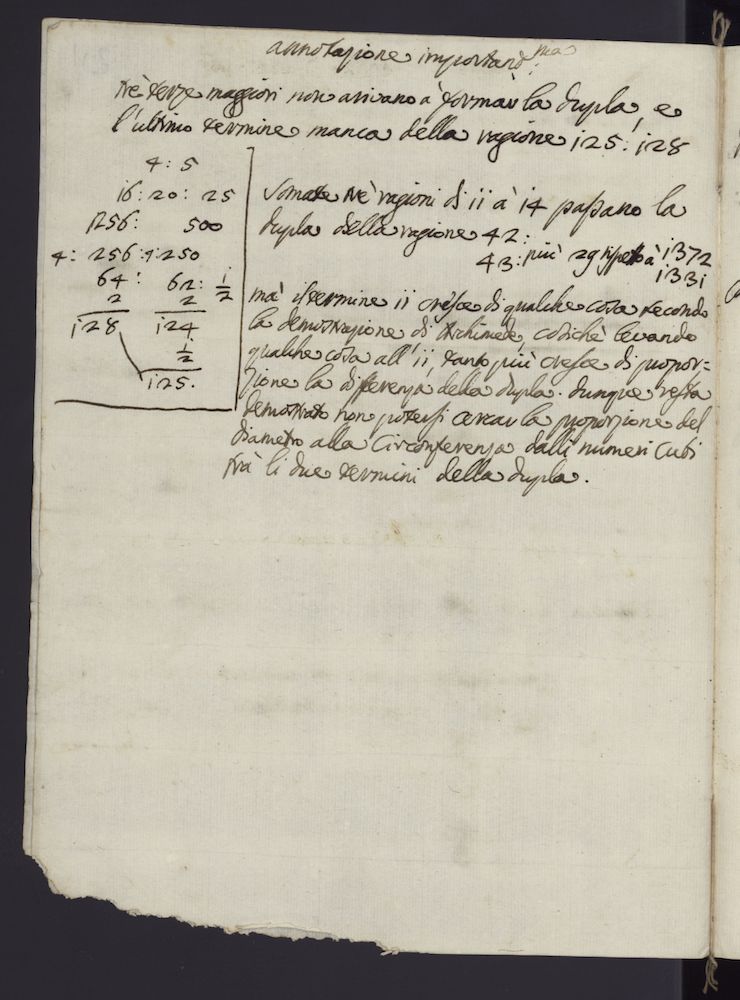 annotazione importand.ma
trè terze maggiori non arivano à formàr la dupla, e
l'ultimo termine manca della ragione 125:128
4: 5
16: 20: 25
1256: 500
4: 256: 1250
64: 62: 1/2
2 2
128 124
1/2
125.
Somate trè ragioni di 11 à 14 passano la
dupla della ragione 42:
43: più 29 rispetto à 1372
1331
mà il termine 11 cresce di qualche cosa secondo
la demostrazione di Archimede, cosichè levando
qualche cosa all'11, tanto più cresce di propor=
zione la differenza della dupla. dunque resta
demostrato non potersi cercar la proporzione del
diametro alla Circonferenza dalli numeri Cubi
trà li due termini della dupla.